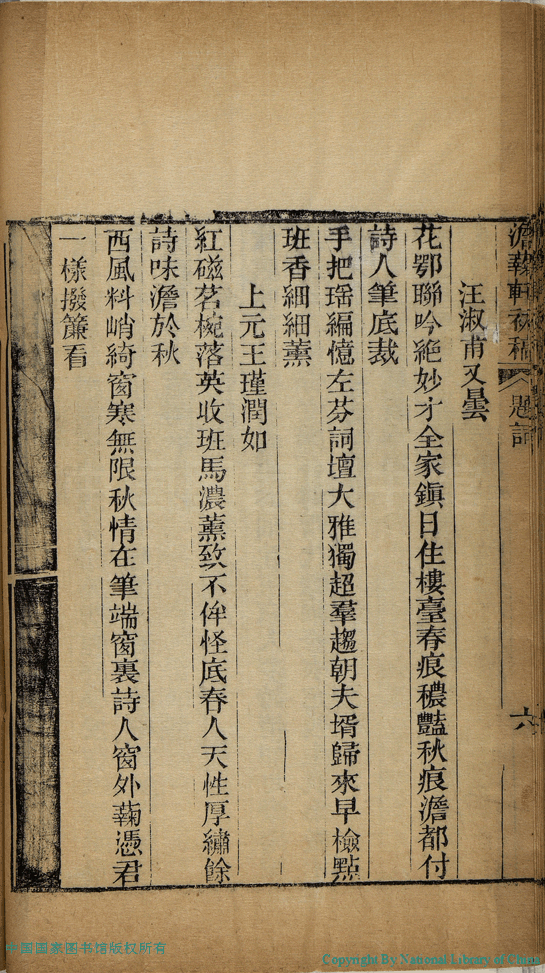 澹蘜軒初稿 題詞
六
汪淑甫又曇
花鄂聯吟絶妙才全家鎮日住樓臺春痕穠豔秋痕澹都付
詩人筆底裁
手把瑶編憶左芬詞壇大雅獨超羣趨朝夫壻歸來早檢點
班香細細薰
上元王瑾潤如
紅磁茗椀落英收班馬濃薰致不侔怪底春人天性厚繡餘
詩味澹於秋
西風料峭綺窗寒無限秋情在筆端窗裏詩人窗外蘜憑君
一樣撥簾看
中国国家图书馆版权所有
Copyright By National Library of China